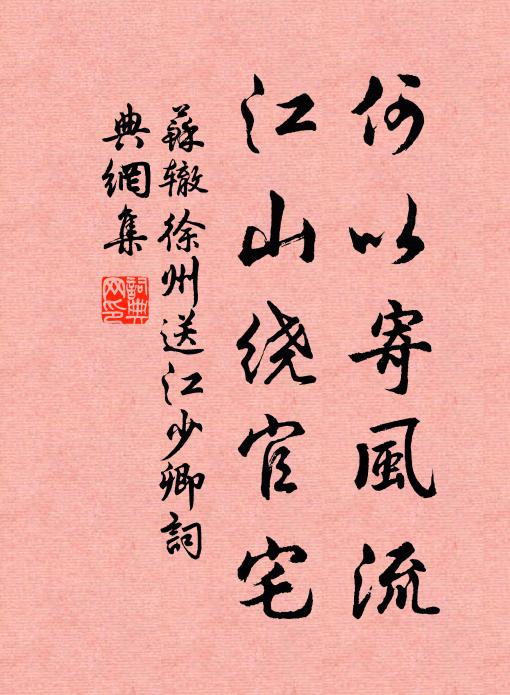 何以寄風流
江山绕官宅
蘇辙徐州送江少卿詞
典網集
詞典
网印